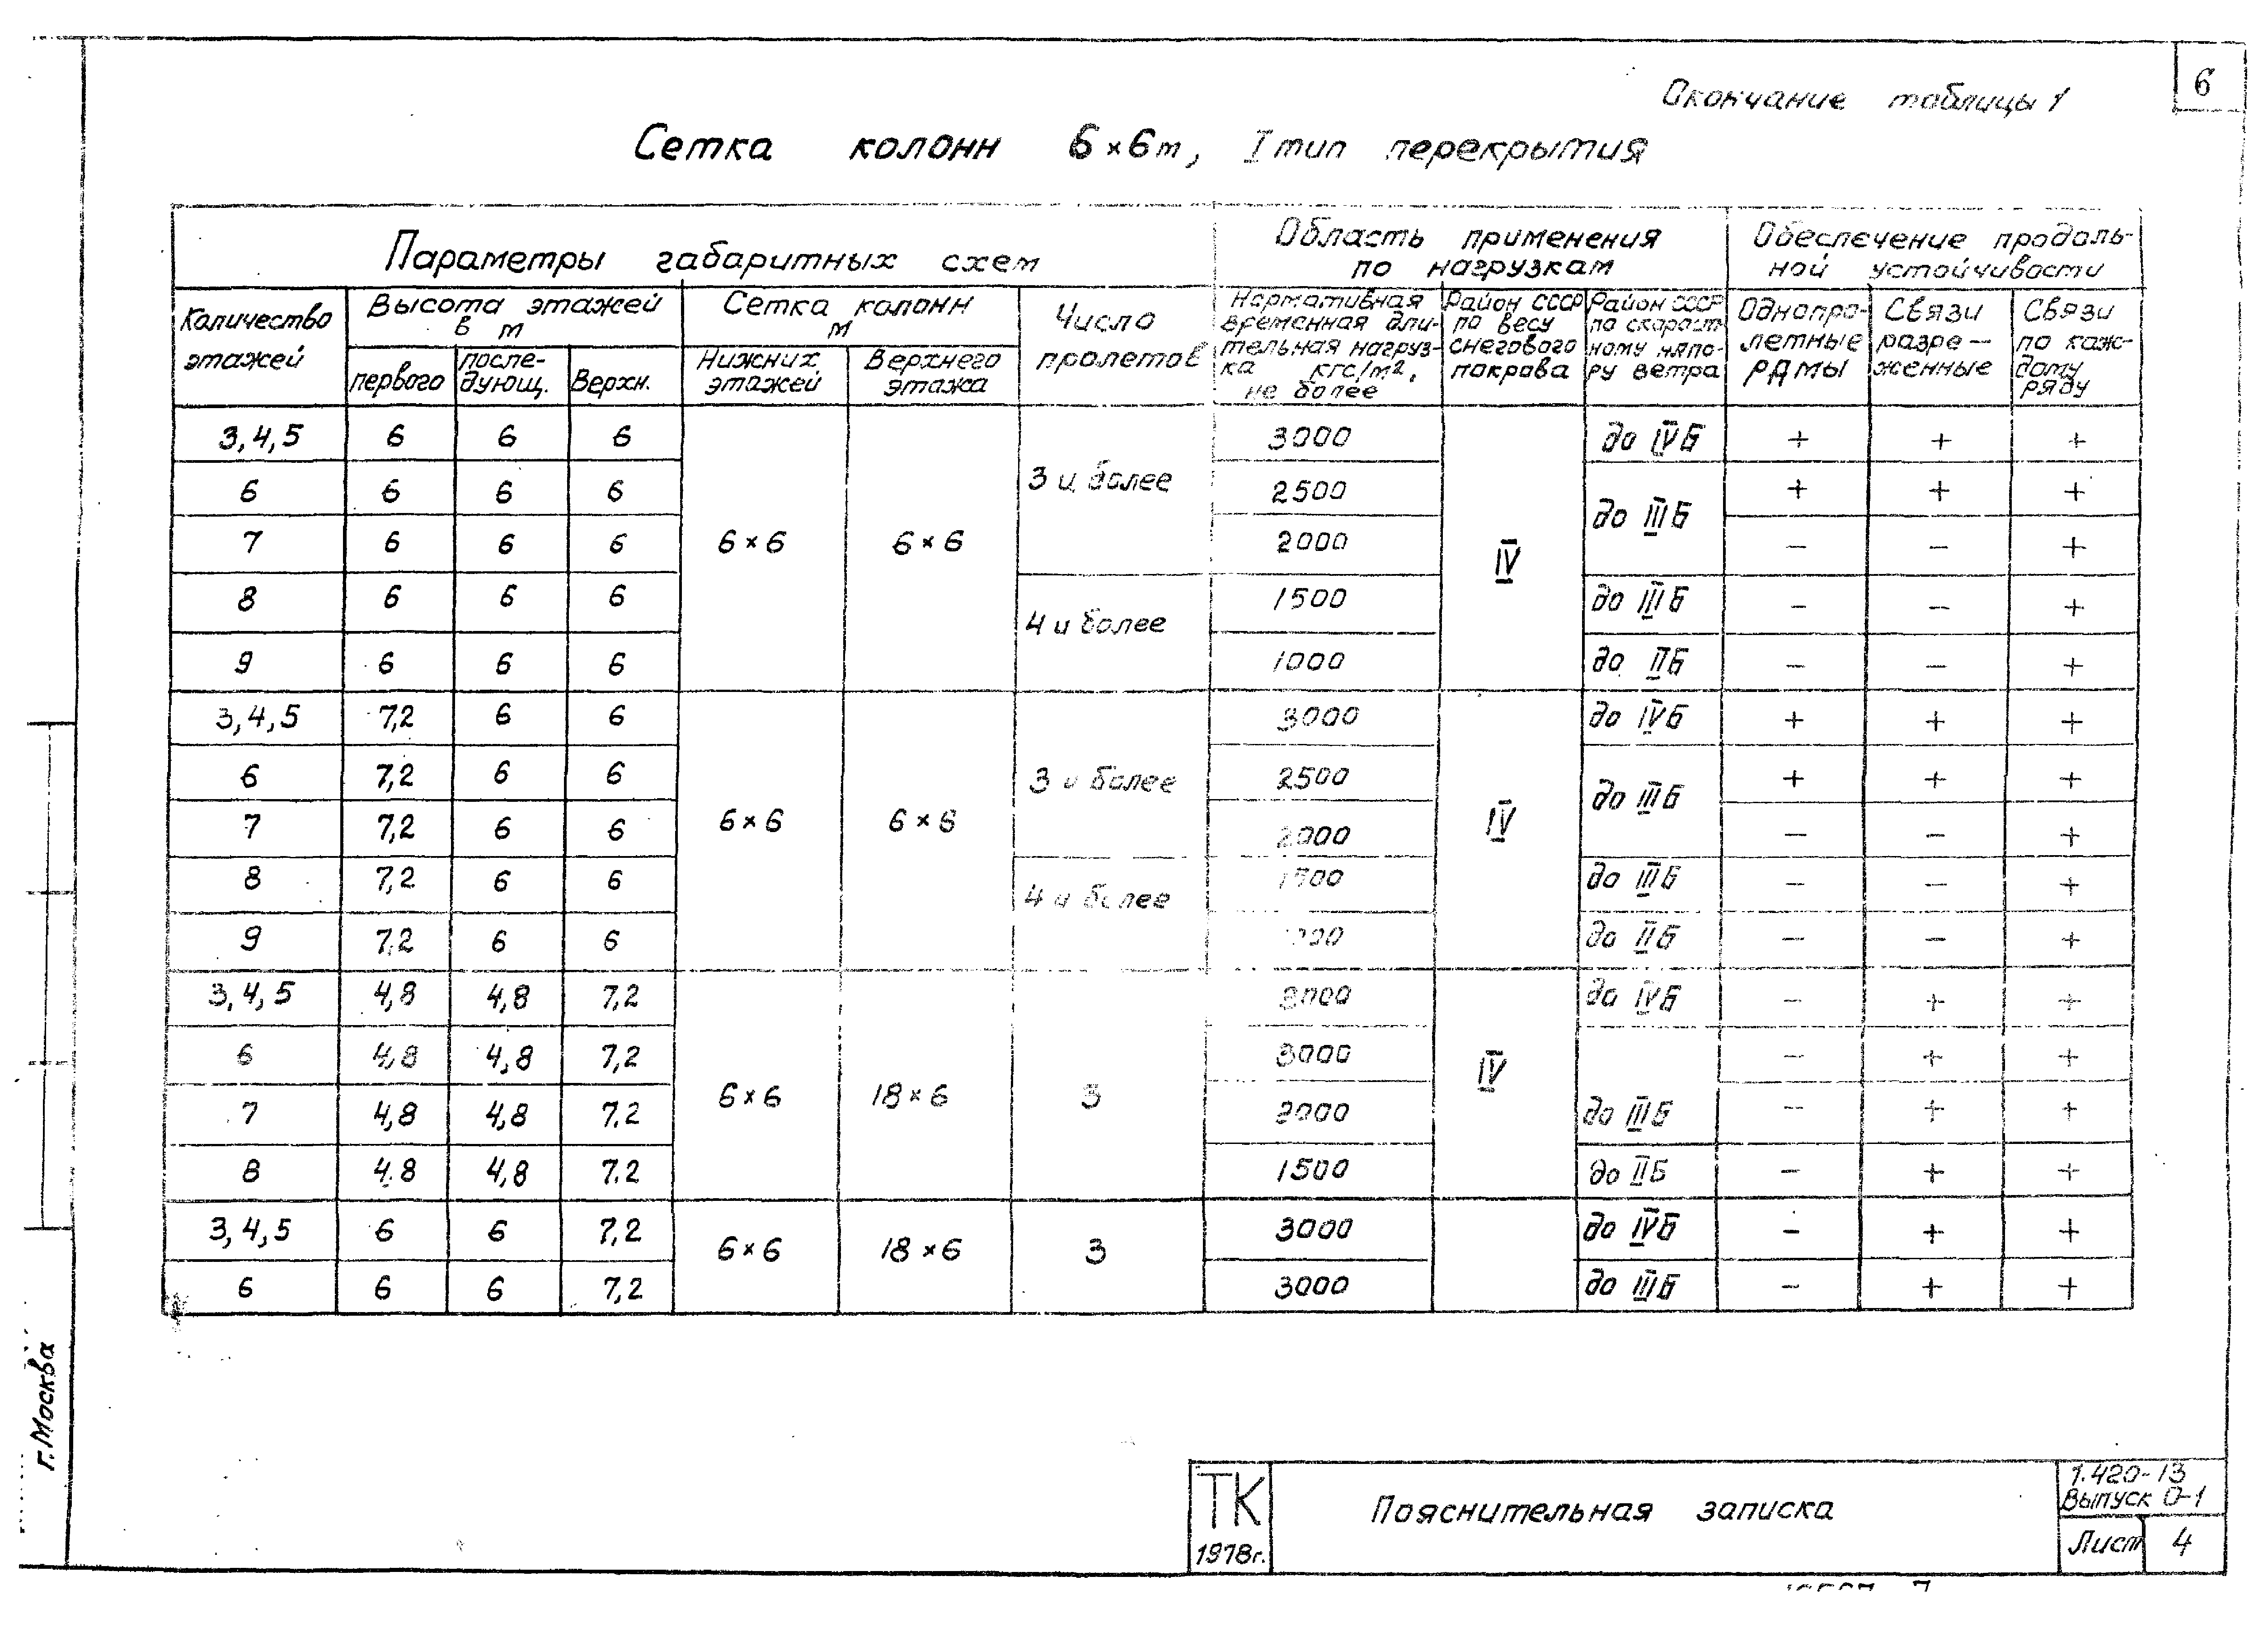 6
Окончание таблицы 1
Сетка колонн 6×6м, I тип перекрытия
Параметры габаритных схем
Область применения по нагрузкам
Обеспечение продоль-
ной устойчивости
Количество этажей
Высота этажей в м
первого
после-
дующ.
Верхн.
Сетка колонн м
Нижних этажей
Верхнего этажа
Число пролетов
Нормативная
временная дли-
тельная нагруз-
ка кгс/м²,
не более
Район СССР
по весу
снегового
покрова
Район СССР
по скорост-
ному напо-
ру ветра
Однопро-
летные
рамы
Связи
разре-
женные
Связи
по каж-
дому
ряду
3,4,5 6 6 6 6×6 6×6 3 и более 3000 IV до IVБ + + +
6 6 6 6 2500 до IIIБ + + +
7 6 6 6 2000 – – +
8 6 6 6 4 и более 1500 до IIIБ – – +
9 6 6 6 1000 до IIБ – – +
3,4,5 7,2 6 6 6×6 6×6 3 и более 3000 IV до IVБ + + +
6 7,2 6 6 2500 до IIIБ + + +
7 7,2 6 6 2000 – – +
8 7,2 6 6 4 и более 1500 до IIIБ – – +
9 7,2 6 6 до IIБ – – +
3,4,5 4,8 4,8 7,2 6×6 18×6 3 3000 IV до IVБ – + +
6 4,8 4,8 7,2 3000 – + +
7 4,8 4,8 7,2 до IIIБ – + +
8 4,8 4,8 7,2 1500 до IIБ – + +
3,4,5 6 6 7,2 6×6 18×6 3 3000 до IVБ – + +
6 6 6 7,2 3000 до IIIБ – + +
г. Москва
ТК
1978г.
Пояснительная записка
1.420-13
Выпуск 0-1
Лист 4